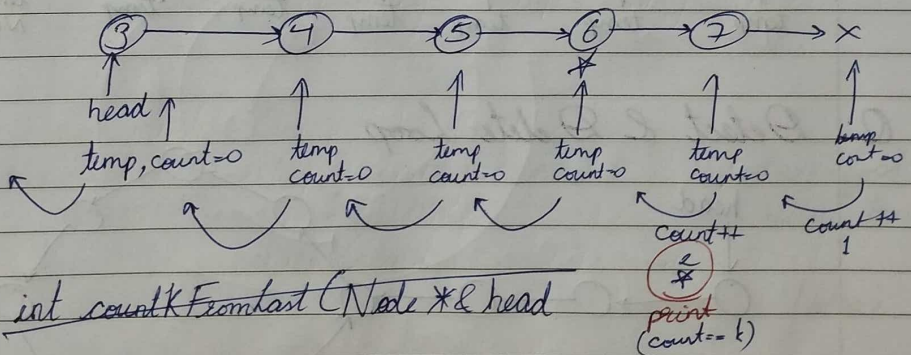 3 4 5 6 7 x
head
temp, count=0
temp
count=0
temp
count=0
temp
count=0
temp
count=0
temp
cont=0
count++
2
count++
1
print
(count== k)
int countKFromLast (Node *& head